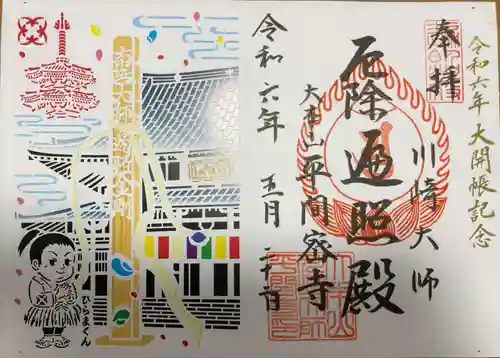 令和六年大開帳記念
奉拝
川崎大師
厄除遍照殿
大本山平間密寺
令和六年 五月二十日
南無大師遍照金剛
ひらまくん